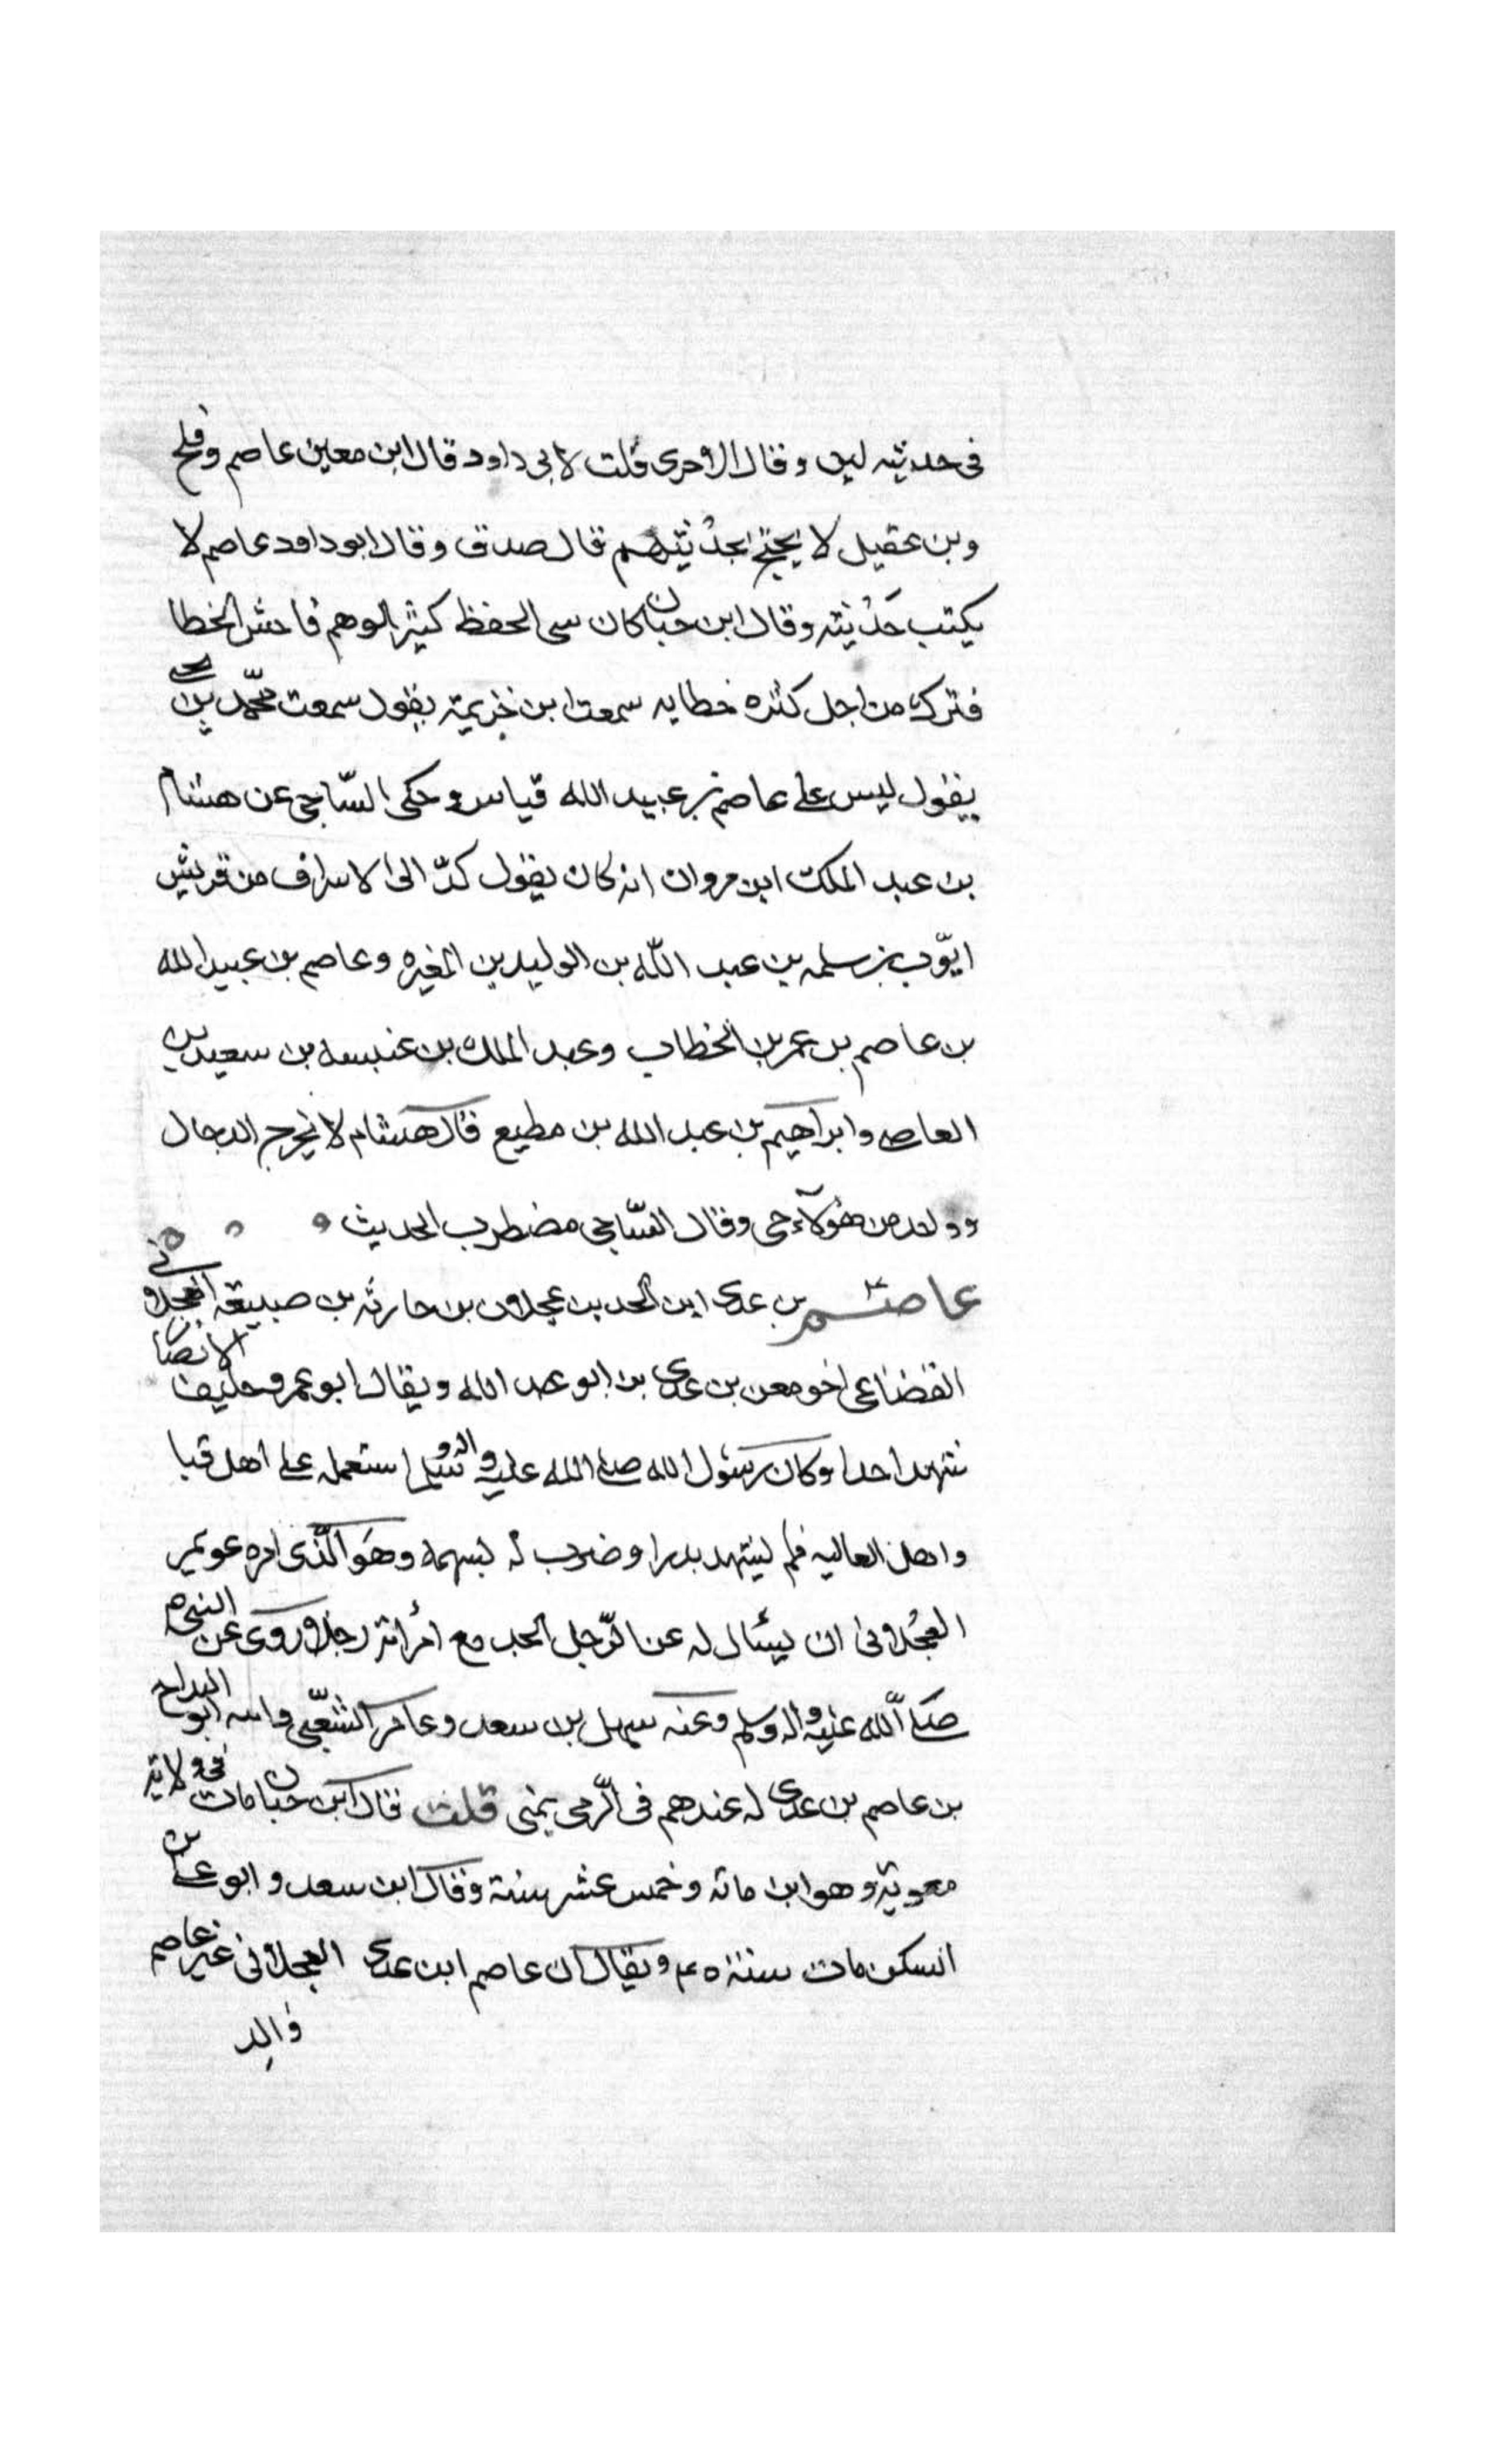 فى حديثه لين وقال الاجرى قلت لابى داود قال ابن معين عاصم وفليح
وبن عقيل لا يحتج بحديثهم قال صدق وقال ابو داود عاصم لا
يكتب حديثه وقال ابن حبان كان سى الحفظ كثير الوهم فاحش الخطا
فترك من اجل كثره خطايه سمعت ابن خزيمة يقول سمعت محمد بن يحيى
يقول ليس على عاصم بن عبيد الله قياس وحكى الساجى عن هشام
بن عبد الملك ابن مروان انه كان يقول الى الاسراف من قريش
ايوب بن سلمه بن عبد الله بن الوليد بن المغيره وعاصم بن عبيد الله
بن عاصم بن عمر بن الخطاب وعبد الملك بن عنبسه بن سعيد بن
العاص وابراهيم بن عبد الله بن مطيع قال هشام لا يخرج الدجال
وواحد من هؤلاء حى وقال الساجى مضطرب الحديث
عاصم بن عدى ابن الجد بن عجلان بن حارثه بن ضبيعة العجلانى
القضاعى اخو معن بن عدى بن ابو عبد الله ويقال ابو عمرو حليف الانصار
شهد احدا وكان رسول الله صلى الله عليه واله وسلم استعمله على اهل قبا
واهل العاليه فلم يشهد بدرا وضرب له بسهمه وهو الذى امره عويمر
العجلانى ان يسال له عن الرجل مع امرأته رجلا وروى عن النبى
صلى الله عليه واله وسلم وعنه سهل بن سعد وعامر الشعبى وابنه ابو البداح
بن عاصم بن عدى له عندهم فى الرمى بمنى قلت قال ابن حبان مات فى ولاية
معوية وهو ابن مائه وخمس عشر سنة وقال ابن سعد وابو على بن
السكن مات سنة ٤٥ ويقال ان عاصم ابن عدى العجلانى غير عاصم
والد